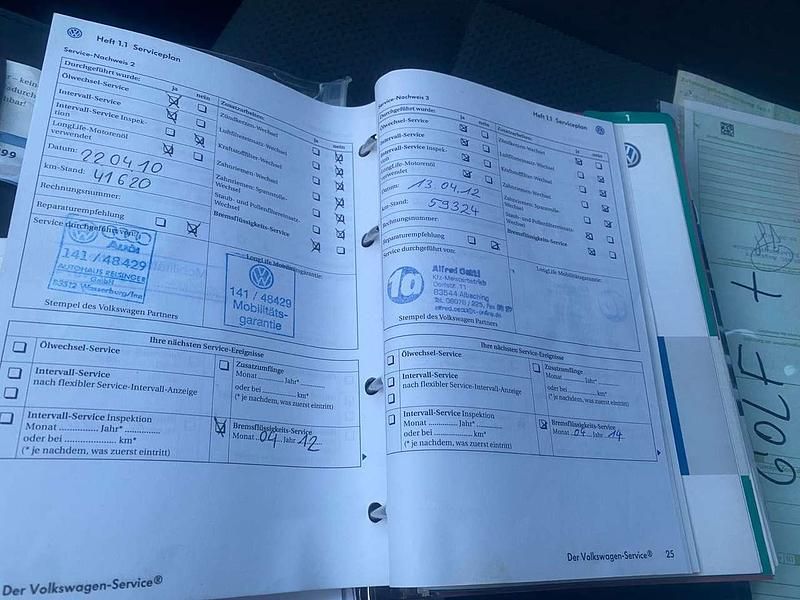 Heft 1.1 Serviceplan
Service-Nachweis 2
Durchgeführt wurde:
ja nein
Ölwechsel-Service
Intervall-Service
Intervall-Service Inspek-
tion
LongLife-Motorenöl
verwendet
Datum: 22 04 10
km-Stand: 41620
Rechnungsnummer:
Reparaturempfehlung
Service durchgeführt von:
Zusatzarbeiten:
nein
Zündkerzen-Wechsel
Luftfiltereinsatz-Wechsel
Kraftstofffilter-Wechsel
Zahnriemen-Wechsel
Zahnriemen-Spannrolle-
Wechsel
Staub- und Pollenfiltereinsatz-
Wechsel
Bremsflüssigkeits-Service
Audi
141 / 48429
AUTOHAUS REISINGER
GmbH
83512 Wasserburg/Inn
LongLife Mobilitätsgarantie:
141 / 48429
Mobilitäts-
garantie
Stempel des Volkswagen Partners
Ihre nächsten Service-Ereignisse
Ölwechsel-Service
Intervall-Service
nach flexibler Service-Intervall-Anzeige
Intervall-Service Inspektion
Monat ............ Jahr* ............
oder bei .................. km*
(* je nachdem, was zuerst eintritt)
Zusatzumfänge
Monat ........ Jahr* ........
oder bei ............ km*
(* je nachdem, was zuerst eintritt)
Bremsflüssigkeits-Service
Monat 04 Jahr 12
Der Volkswagen-Service®
Heft 1.1 Serviceplan
Service-Nachweis 3
Durchgeführt wurde:
ja nein
Ölwechsel-Service
Intervall-Service
Intervall-Service Inspek-
tion
LongLife-Motorenöl
verwendet
Datum: 13.04.12
km-Stand: 59324
Rechnungsnummer:
Reparaturempfehlung
Service durchgeführt von:
Zusatzarbeiten:
ja nein
Zündkerzen-Wechsel
Luftfiltereinsatz-Wechsel
Kraftstofffilter-Wechsel
Zahnriemen-Wechsel
Zahnriemen-Spannrolle-
Wechsel
Staub- und Pollenfiltereinsatz-
Wechsel
Bremsflüssigkeits-Service
Alfred
Kfz-Meisterbetrieb
Dorfstr. 11
83544 Albaching
LongLife Mobilitätsgarantie:
Stempel des Volkswagen Partners
Ihre nächsten Service-Ereignisse
Ölwechsel-Service
Intervall-Service
nach flexibler Service-Intervall-Anzeige
Intervall-Service Inspektion
Monat ............ Jahr* ............
oder bei .................. km*
(* je nachdem, was zuerst eintritt)
Zusatzumfänge
Monat ........ Jahr* ........
oder bei ............ km*
(* je nachdem, was zuerst eintritt)
Bremsflüssigkeits-Service
Monat 04 Jahr 14
Der Volkswagen-Service® 25
1
GOLF +
99